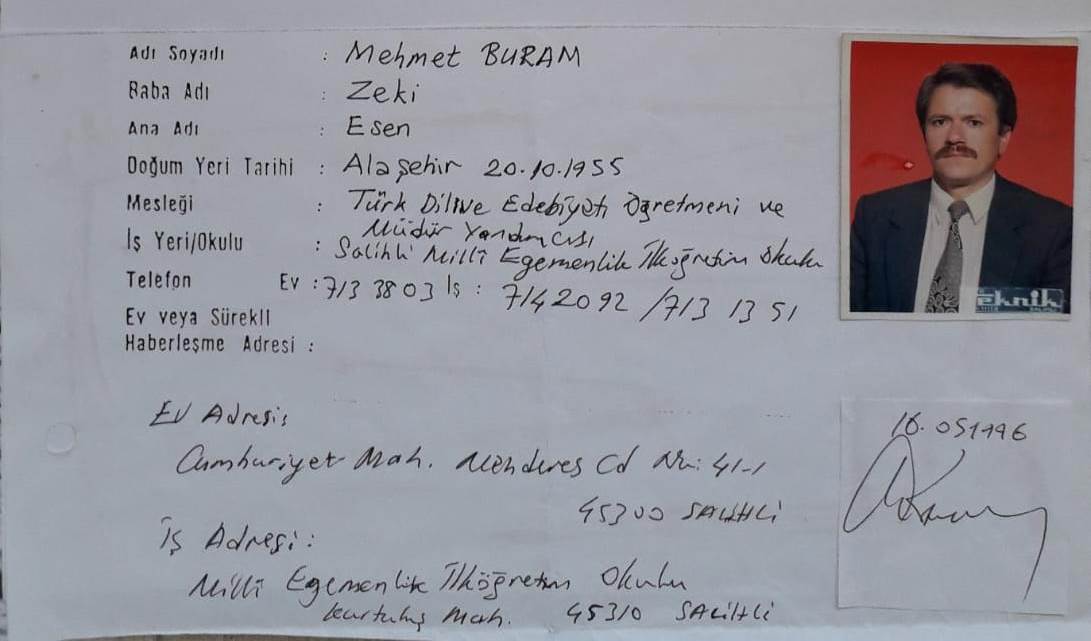 Adı Soyadı : Mehmet BURAM
Baba Adı : Zeki
Ana Adı : Esen
Doğum Yeri Tarihi : Alaşehir 20.10.1955
Mesleği : Türk Dili ve Edebiyatı Öğretmeni ve
Müdür Yardımcısı
İş Yeri/Okulu : Salihli Millî Egemenlik İlköğretim Okulu
Telefon Ev : 713 3803 İş : 714 2092 / 713 13 51
Ev veya Sürekli
Haberleşme Adresi :
Ev Adresi:
Cumhuriyet Mah. Menderes Cd Nu: 41-1
45300 SALİHLİ
İş Adresi:
Millî Egemenlik İlköğretim Okulu
Kurtuluş Mah. 45310 SALİHLİ
teknik
16.05.1996